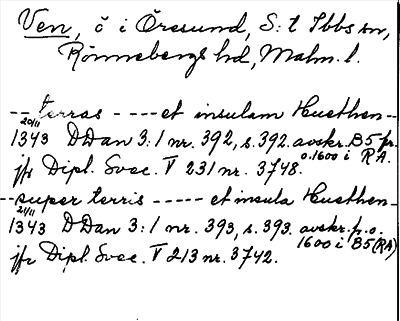 Ven, ö i Öresund, S:t Ibbs sn,
Rönnebergs hd, Malm. l.
-- terras ---- et insulam Huethen --
20/11
1343 DDan 3:1 nr. 392, s. 392. avskr. B5 fr.
o. 1600 i RA.
jfr Dipl. Svec. V 231 nr. 3748.
-- super terris ----- et insula Huethen --
21/11
1343 DDan 3:1 nr. 393, s. 393. avskr. fr. o.
1600 i B5 (RA)
jfr Dipl. Svec. V 213 nr. 3742.